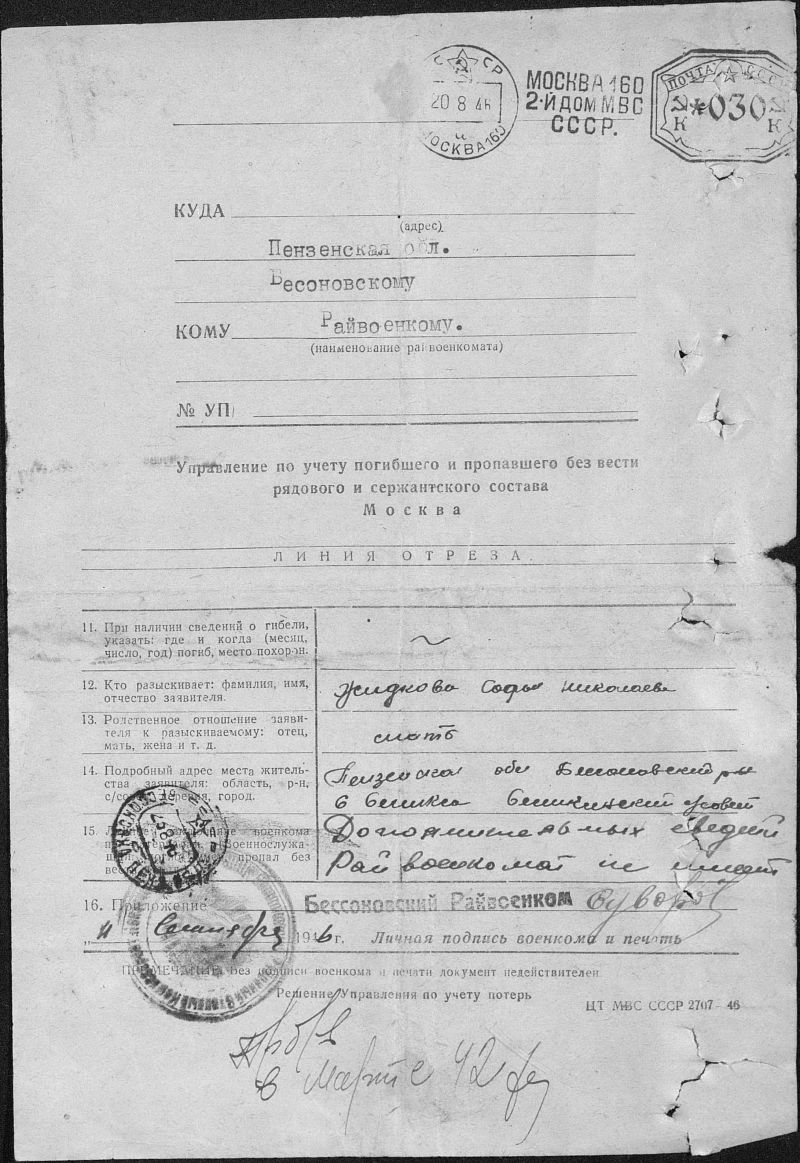 СССР
20 8 46
МОСКВА 160
МОСКВА 160
2-Й ДОМ МВС
СССР.
ПОЧТА СССР
*030
К К
КУДА
(адрес)
Пензенская обл.
Бесоновскому
КОМУ Райвоенкому.
(наименование райвоенкомата)
№ УП
Управление по учету погибшего и пропавшего без вести
рядового и сержантского состава
Москва
ЛИНИЯ ОТРЕЗА.
11. При наличии сведений о гибели,
указать: где и когда (месяц,
число, год) погиб, место похорон.
~
12. Кто разыскивает: фамилия, имя,
отчество заявителя.
Жидкова Софья Николаевн
13. Родственное отношение заяви-
теля к разыскиваемому: отец,
мать, жена и т. д.
мать
14. Подробный адрес места житель-
ства заявителя: область, р-н,
с/сов., деревня, город.
Пензенская обл Бессоновский р-н
15. военкома
военнослужа-
пропал без
Дополнительных сведений
Райвоенкомат не имеет
16. Приложение
Бессоновский Райвоенком Суворов
„11 Сентября 1946 г. Личная подпись военкома и печать
ПРИМЕЧАНИЕ. Без подписи военкома и печати документ недействителен
Решение Управления по учету потерь
ЦТ МВС СССР 2707–46
в марте 42